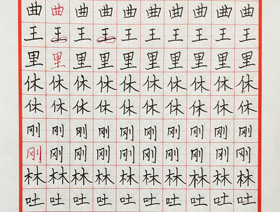 曲曲曲曲曲曲曲曲曲曲
王王王王王王王王王王
里里里里里里里里里里
休休休休休休休休休休
休休休休休休休休休休
刚刚刚刚刚刚刚刚刚刚
刚刚刚刚刚刚刚刚刚刚
林林林林林林林林林林
吐吐吐吐吐吐吐吐吐吐